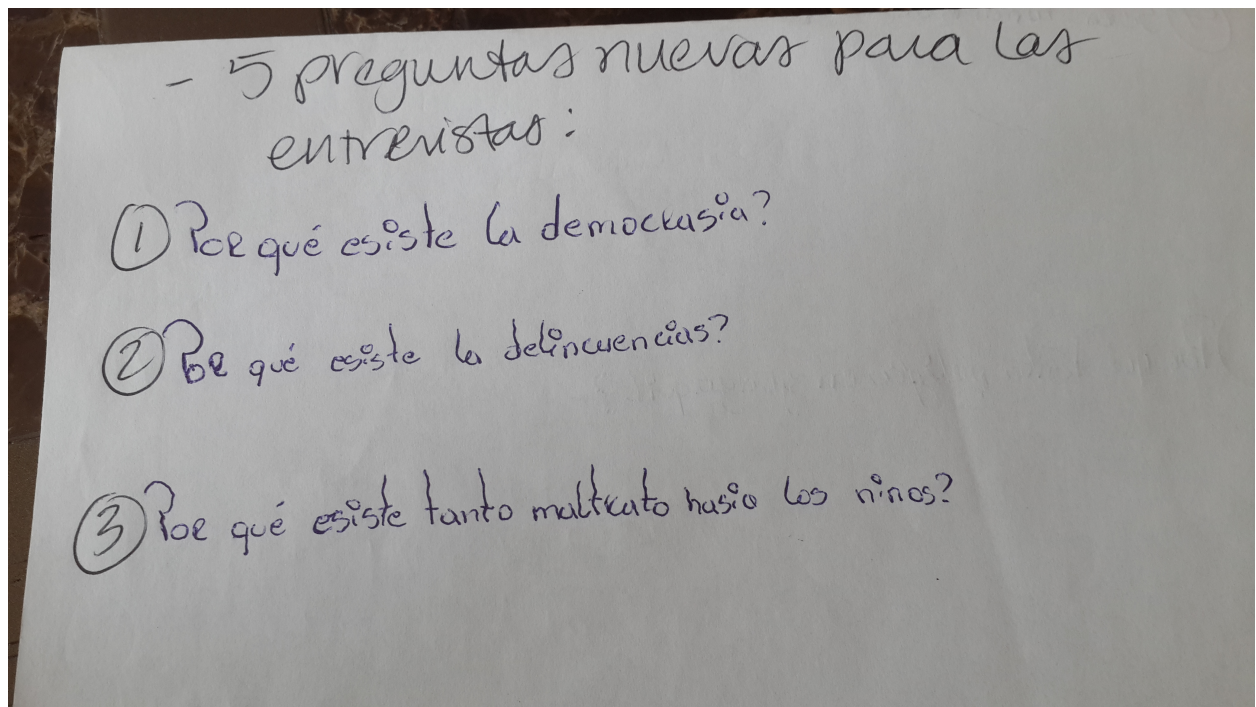 - 5 preguntas nuevas para las
entrevistas:
① Por qué esiste la democrasia?
② Por qué esiste la delincuencias?
③ Por qué esiste tanto maltrato hasia los ninos?